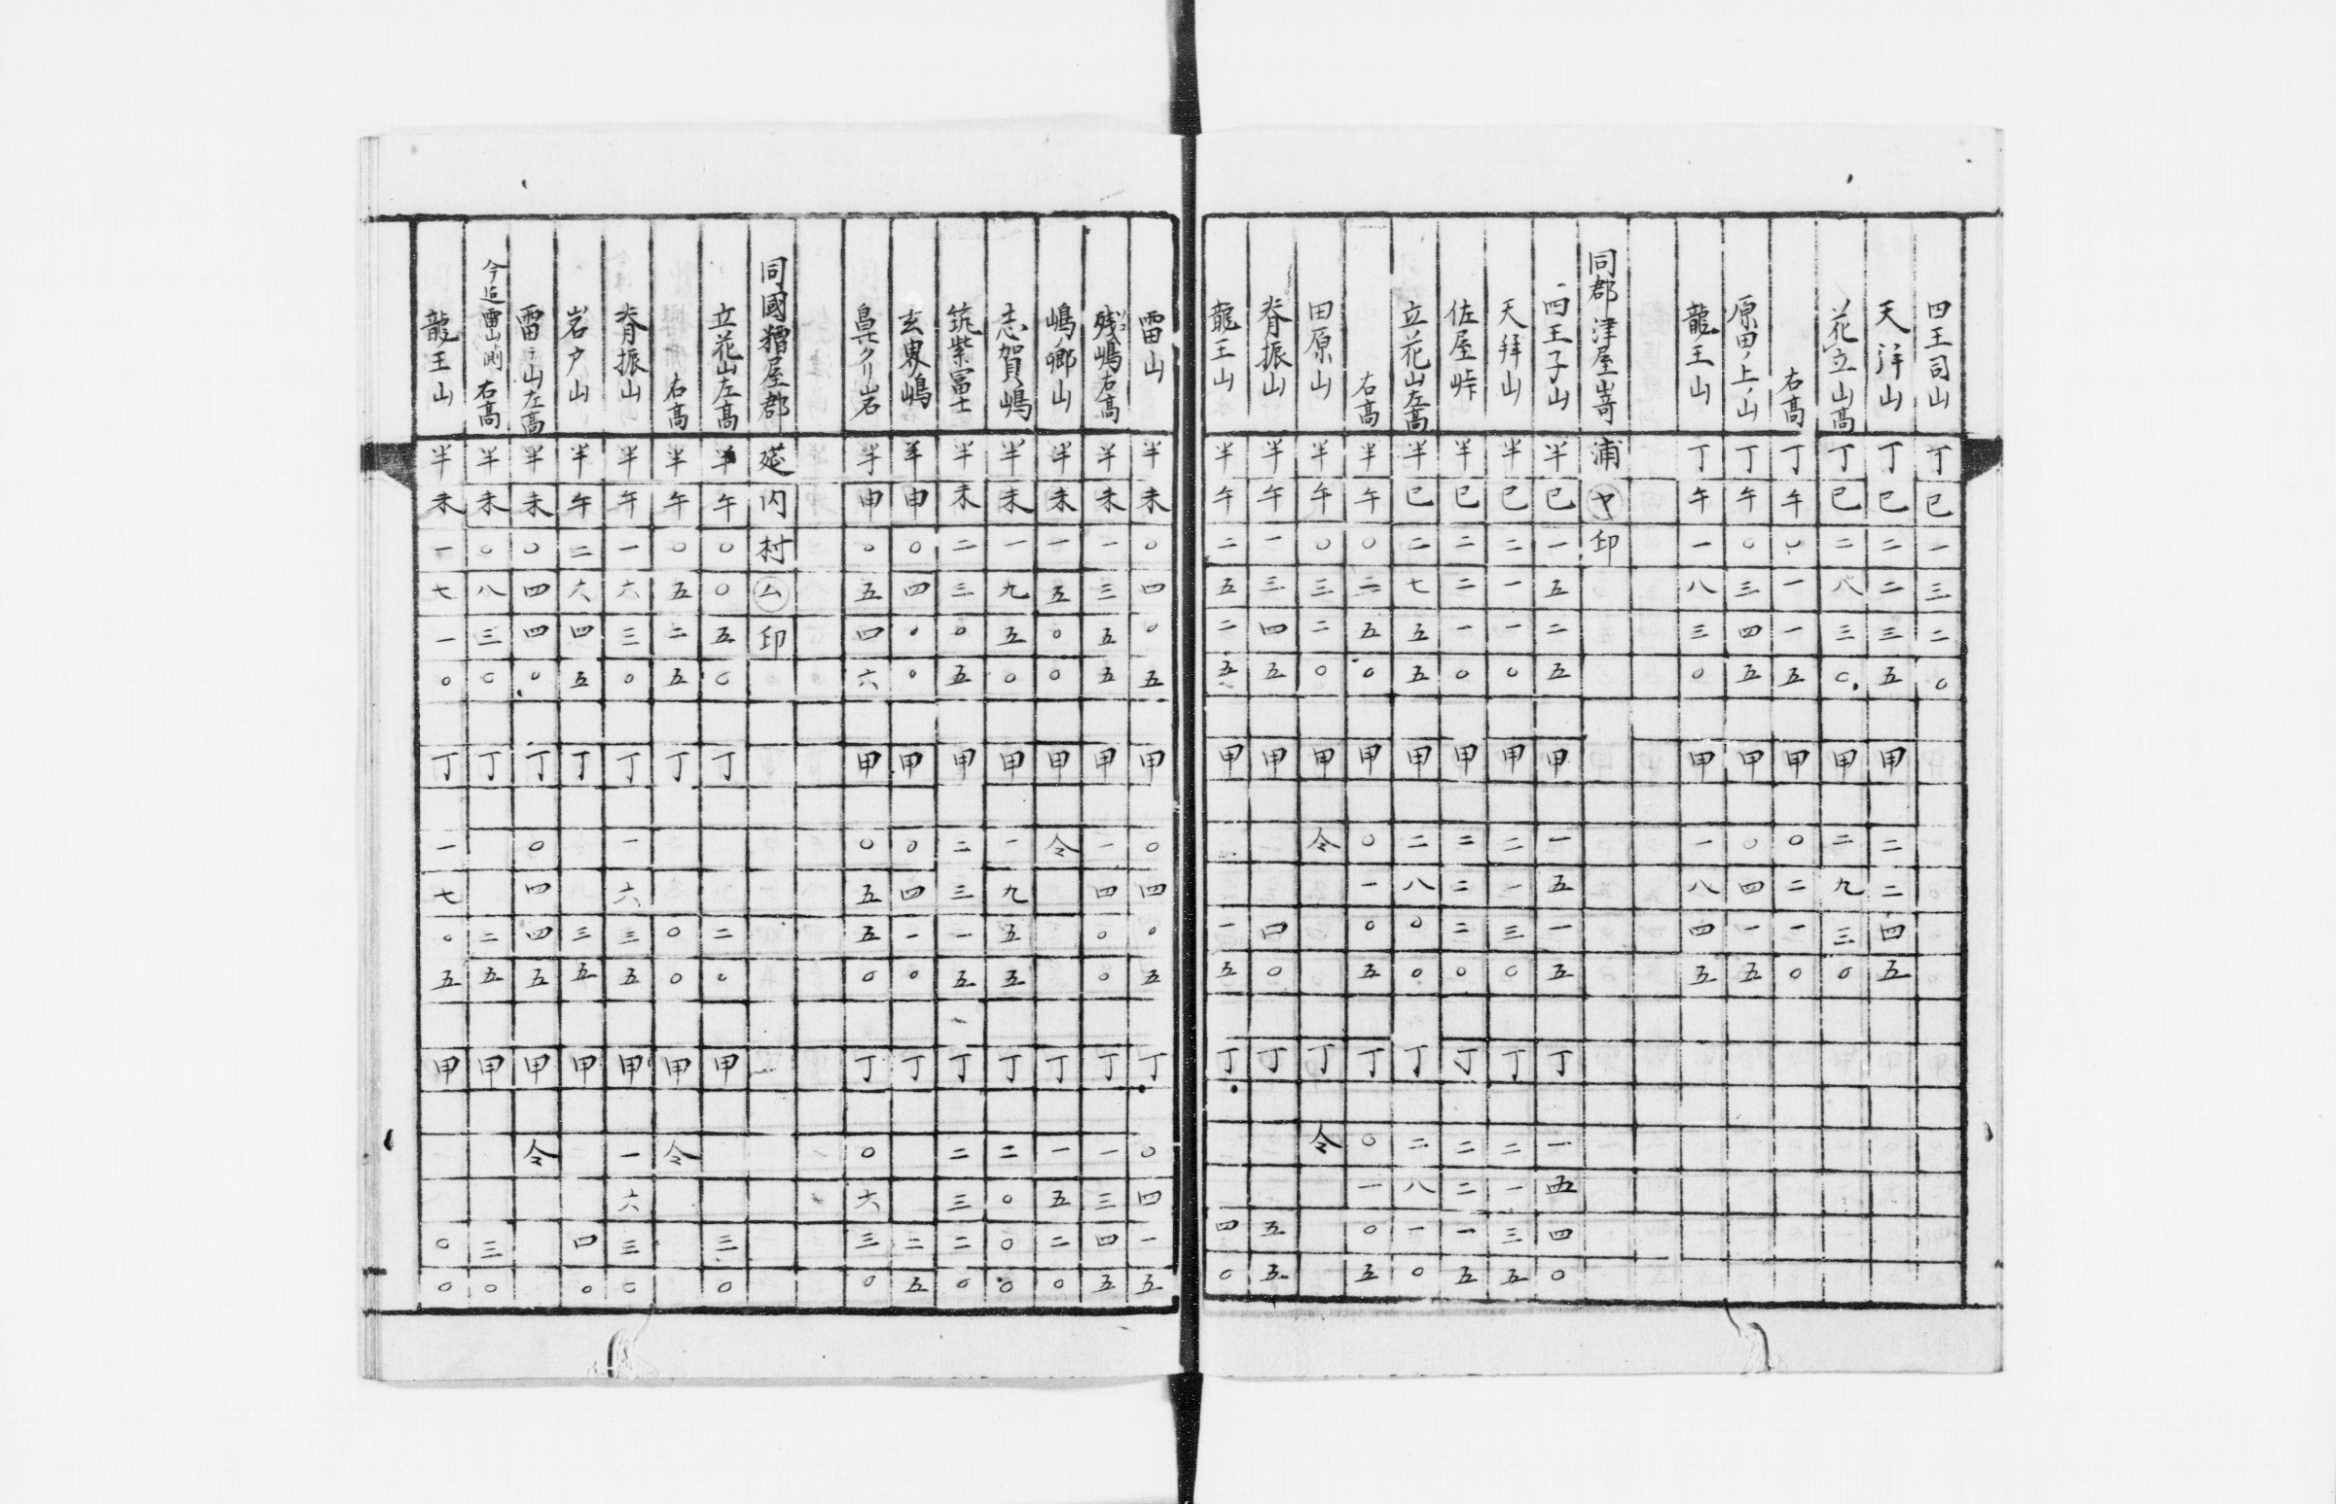 四王司山 丁巳一三二〇
天拝山 丁巳二二三五 甲二二四五
花立山高 丁巳二八三〇 甲二九三〇
右高 丁午〇一一五 甲〇二一〇
原田ノ上ノ山 丁午〇三四五 甲〇四一五
龍王山 丁午一八三〇 甲一八四五
同郡津屋嵜浦ヤ印
四王子山 半巳一五二五 甲一五一五 丁一五四〇
天拜山 半巳二一一〇 甲二一三〇 丁二一三五
佐屋峠 半巳二二一〇 甲二二二〇 丁二二一五
立花山左高 半巳二七五五 甲二八〇〇 丁二八一〇
右高 半午〇二五〇 甲〇一〇五 丁〇一〇五
田原山 半午〇三二〇 甲令 丁令
脊振山 半午一三四五 甲四〇 丁五五
龍王山 半午二五二五 甲一五 丁四〇
雷山 半未〇四〇五 甲〇四〇五 丁〇四一五
残嶋右高 半未一三五五 甲一四〇〇 丁一三四五
嶋ノ郷山 半未一五〇〇 甲令 丁一五二〇
志賀嶋 半未一九五〇 甲一九五五 丁二〇〇〇
筑紫冨士 半未二三〇五 甲二三一五 丁二三二〇
玄界嶋 半申〇四〇〇 甲〇四一〇 丁二五
鼻クリ岩 半申〇五四六 甲〇五五〇 丁〇六三〇
同國糟屋郡莚内村ム印
立花山左高 半午〇〇五〇 丁二〇 甲三〇
右高 半午〇五二五 丁〇〇 甲令
脊振山 半午一六三〇 丁一六三五 甲一六三〇
岩户山 半午二六四五 丁三五 甲四〇
雷ノ山左高 半未〇四四〇 丁〇四四五 甲令
今迄雷山測右高 半未〇八三〇 丁二五 甲三〇
龍王山 半未一七一〇 丁一七〇五 甲〇〇